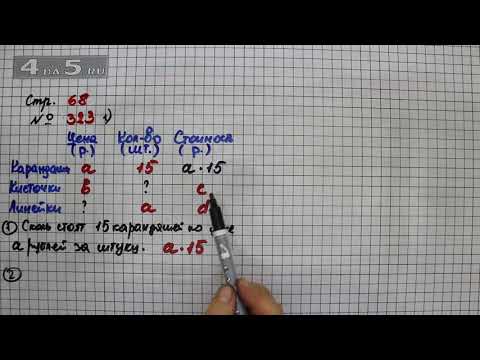 4 DA 5.RU
Стр. 68
№ 323 1)
Цена Кол-во Стоимос
(р.) (шт.) (р.)
Карандаши a 15 a · 15
Кисточки в ? с
Линейки ? а d
1 Сколь стоят 15 карандашей по
а рублей за штуку. а · 15
2